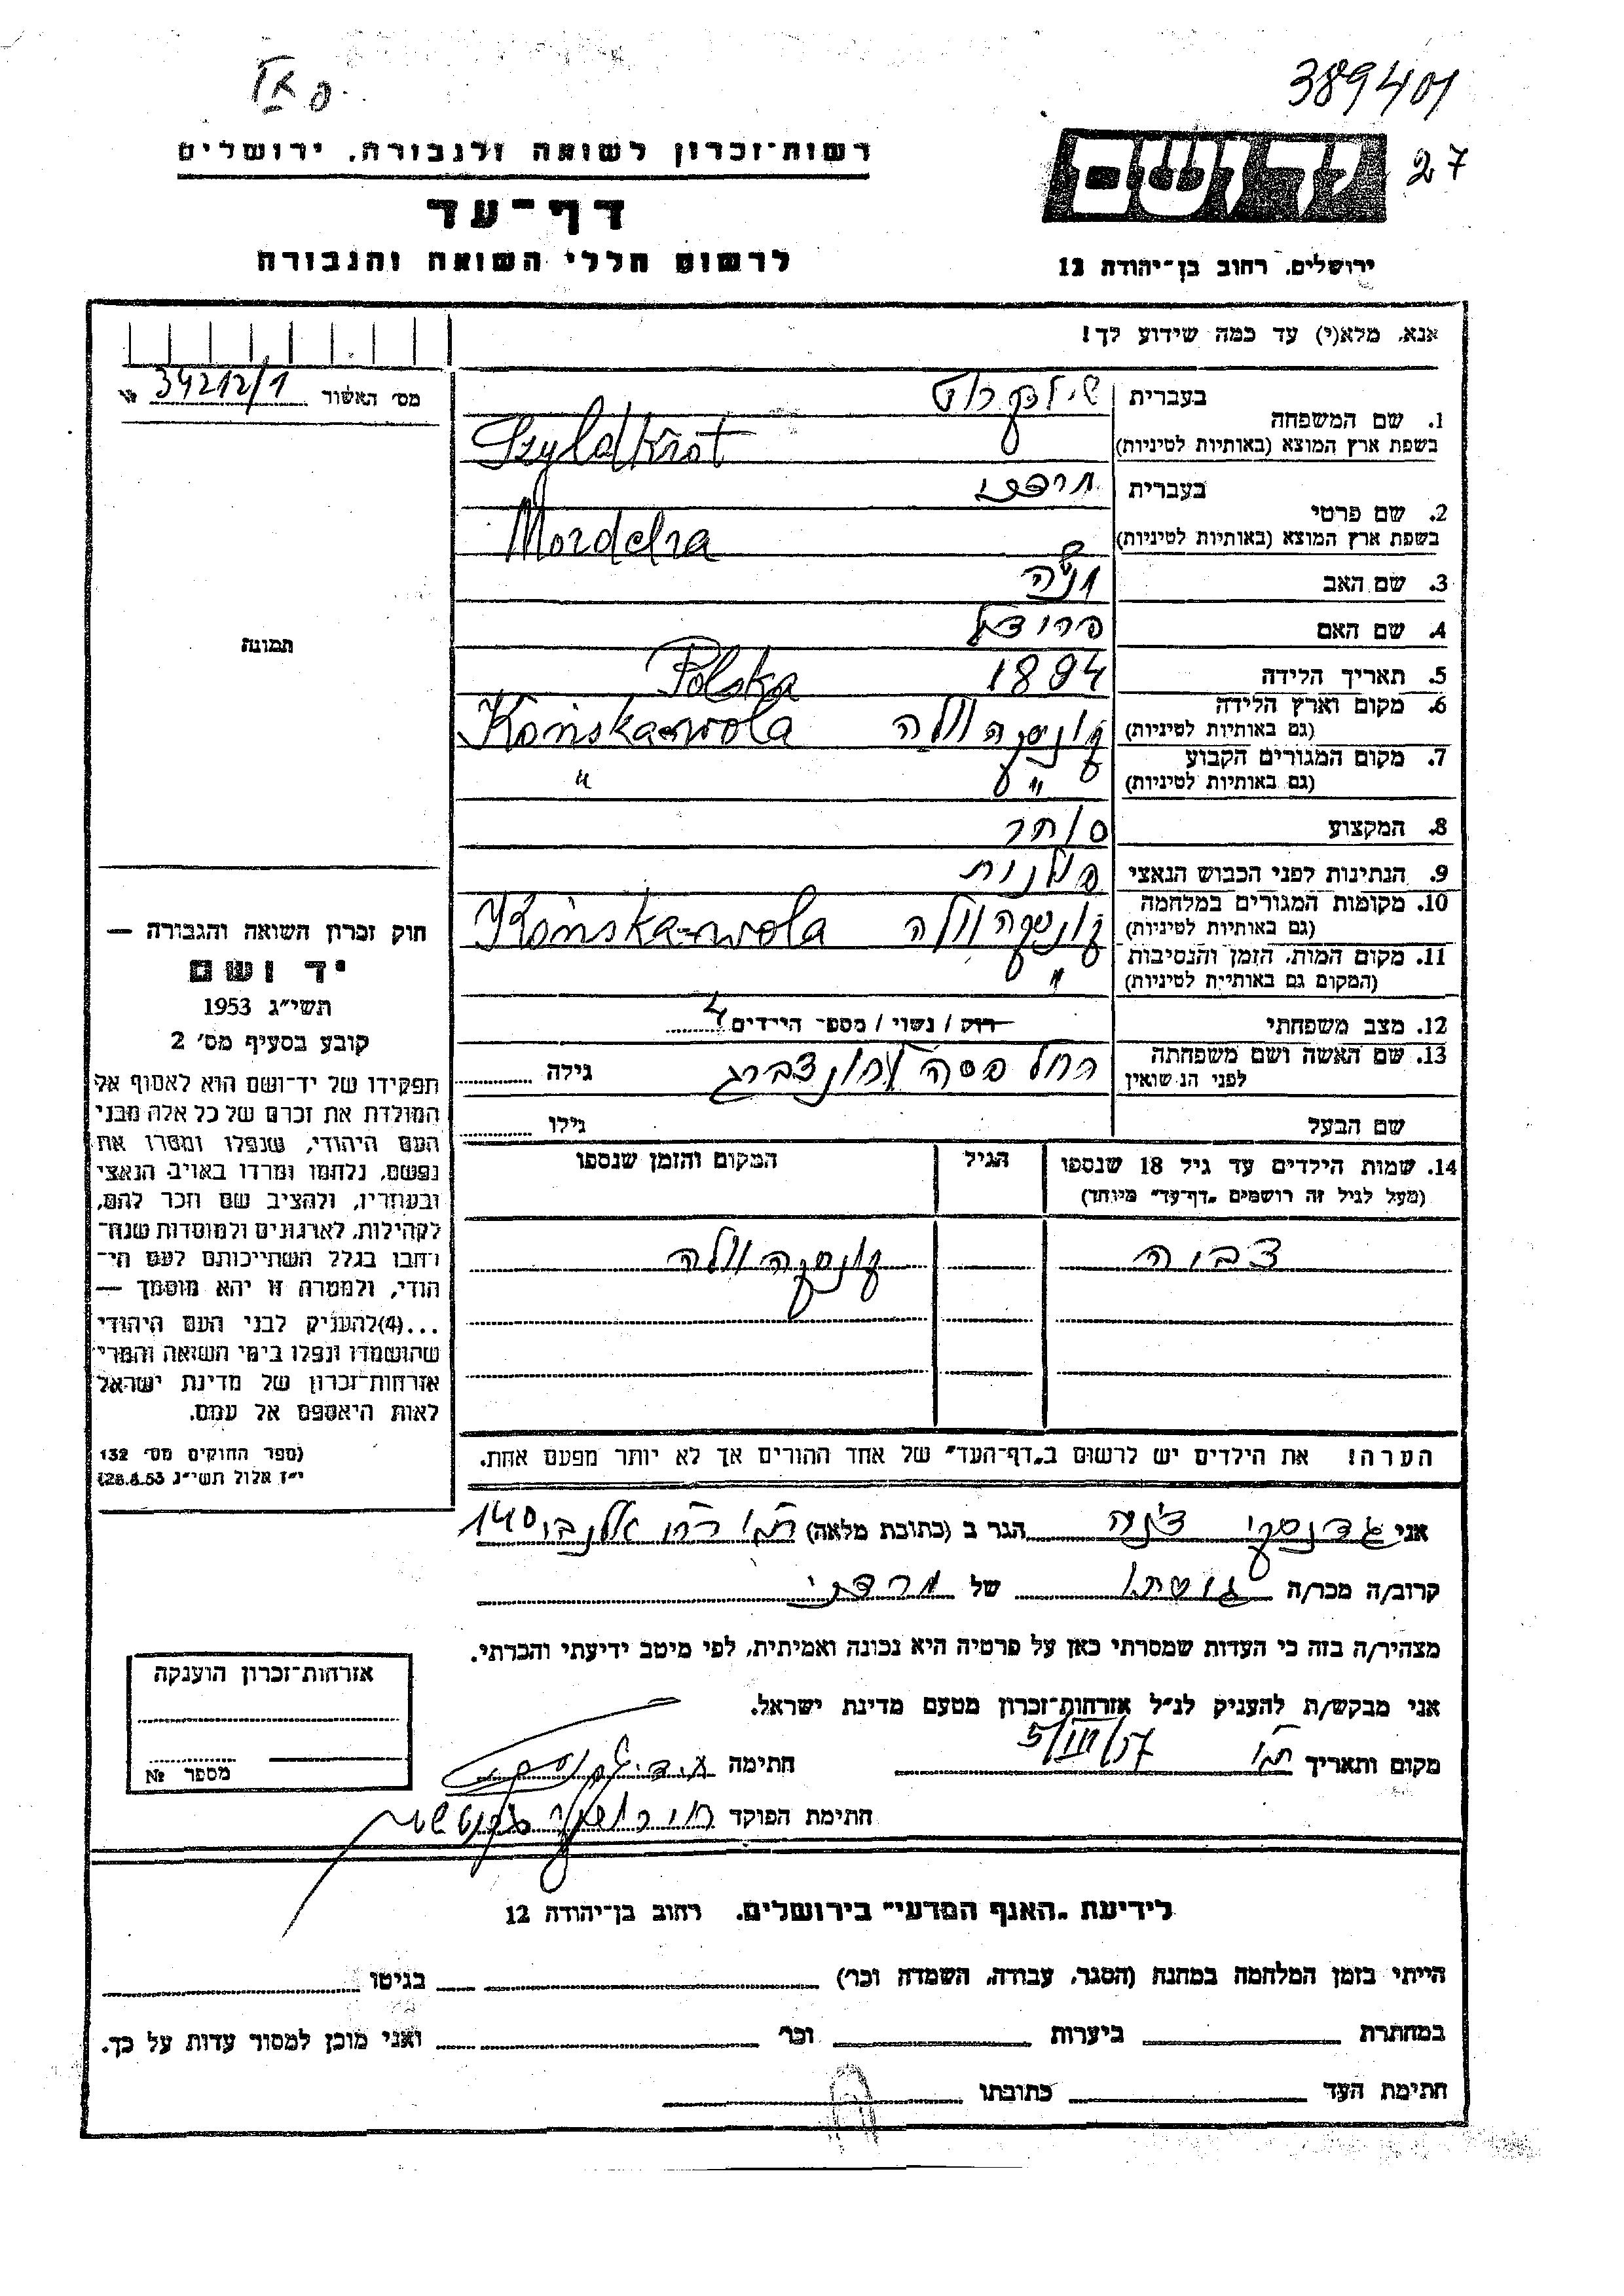 389401
27
רשות־זכרון לשואה ולגבורה. ירושלים
דף־עד
לרשום חללי השואה והגבורה
יד ושם
ירושלים. רחוב בן־יהודה 12
אנא. מלא(י) עד כמה שידוע לך!
מס׳ האשור 34212/1
1. שם המשפחה
בעברית שילדקרוט
בשפת ארץ המוצא (באותיות לטיניות) Szyldkrot
2. שם פרטי
בעברית מרדכי
בשפת ארץ המוצא (באותיות לטיניות)
3. שם האב
4. שם האם
5. תאריך הלידה 1894
6. מקום וארץ הלידה (גם באותיות לטיניות) קונסקה וולה Końska-wola Polska
7. מקום המגורים הקבוע (גם באותיות לטיניות) " "
8. המקצוע סוחר
9. הנתינות לפני הכבוש הנאצי פולנית
10. מקומות המגורים במלחמה (גם באותיות לטיניות) קונסקה וולה Końska-wola
11. מקום המות. הזמן והנסיבות (המקום גם באותיית לטיניות) "
12. מצב משפחתי רוק / נשוי / מספר הילדים 4
13. שם האשה ושם משפחתה לפני הנשואין רחל גילה
שם הבעל גילו
14. שמות הילדים עד גיל 18 שנספו
(מעל לגיל זה רושמים „דף־עד" מיוחד)
הגיל
המקום והזמן שנספו
קונסקה וולה
הערה! את הילדים יש לרשום ב„דף־העד" של אחד ההורים אך לא יותר מפעם אחת.
תמונה
חוק זכרון השואה והגבורה —
יד ושם
תשי״ג 1953
קובע בסעיף מס׳ 2
תפקידו של יד־ושם הוא לאסוף אל
המולדת את זכרם של כל אלה מבני
העם היהודי, שנפלו ומסרו את
נפשם, נלחמו ומרדו באויב הנאצי
ובעוזריו, ולהציב שם וזכר להם,
לקהילות, לארגונים ולמוסדות שנח־
רבו בגלל השתייכותם לעם הי־
הודי, ולמטרה זו יהא מוסמך —
...(4)להעניק לבני העם היהודי
שהושמדו ונפלו בימי השואה והמרי
אזרחות־זכרון של מדינת ישראל
לאות היאספם אל עמם.
(ספר החוקים מס׳ 132
י״ז אלול תשי״ג 28.8.53)
אני הגר ב (כתובת מלאה) רח׳ אלנבי 140
קרוב/ה מכר/ה של מרדכי
מצהיר/ה בזה כי העדות שמסרתי כאן על פרטיה היא נכונה ואמיתית, לפי מיטב ידיעתי והכרתי.
אני מבקש/ת להעניק לנ״ל אזרחות־זכרון מטעם מדינת ישראל.
מקום ותאריך 5/III/57 חתימה
חתימת הפוקד
אזרחות־זכרון הוענקה
מספר №
לידיעת „האגף המדעי" בירושלים. רחוב בן־יהודה 12
הייתי בזמן המלחמה במחנה (הסגר, עבודה, השמדה וכו׳) בגיטו
במחתרת ביערות וכו׳ ואני מוכן למסור עדות על כך.
חתימת העד כתובתו